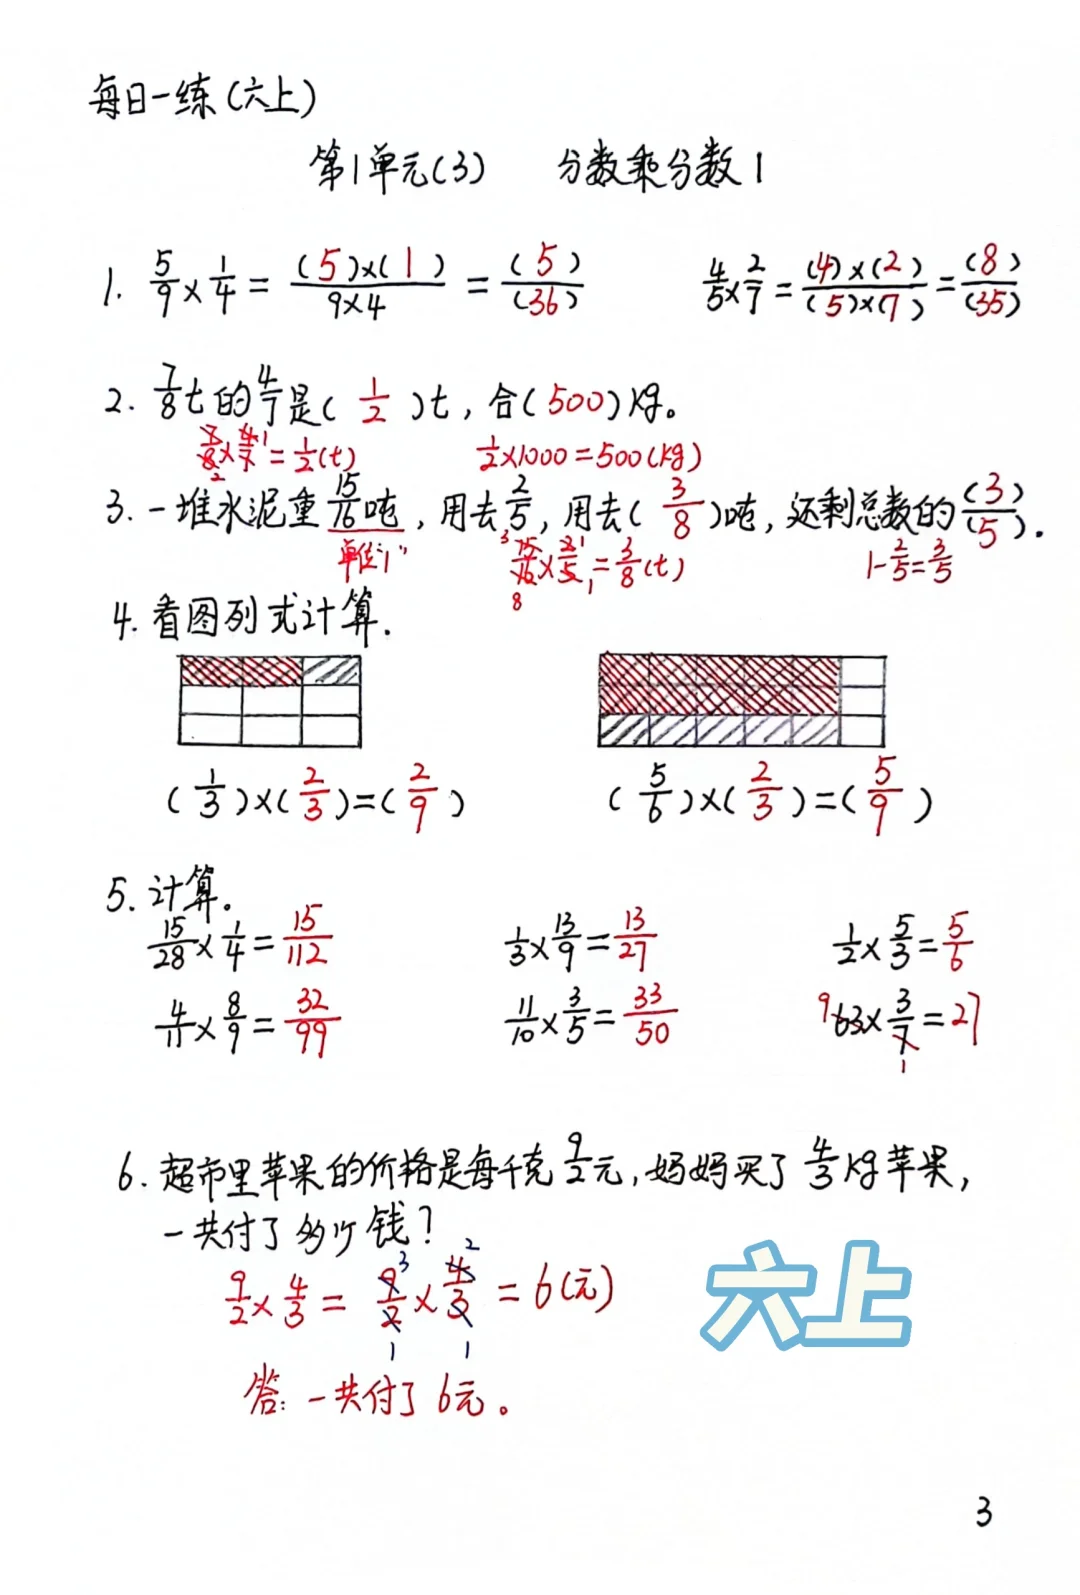 每日一练(六上)
第1单元(3) 分数乘分数1
1. 5/9 × 1/4 = (5)×(1)/9×4 = (5)/(36) 4/5 × 2/7 = (4)×(2)/(5)×(7) = (8)/(35)
2. 7/8 t的4/7是( 1/2 )t, 合(500)kg。
7/8 × 4/7 = 1/2(t) 1/2×1000=500(kg)
2 1
3. 一堆水泥重15/16吨, 用去2/5, 用去( 3/8 )吨, 还剩总数的(3)/(5).
单位"1" 15/16 × 2/5 = 3/8(t) 1-2/5=3/5
3 1 8 1
4. 看图列式计算.
( 1/3 )×( 2/3 )=( 2/9 ) ( 5/6 )×( 2/3 )=( 5/9 )
5. 计算。
15/28 × 1/4 = 15/112 1/3 × 13/9 = 13/27 1/2 × 5/3 = 5/6
4/11 × 8/9 = 32/99 11/10 × 3/5 = 33/50 9 63 × 3/7 = 27
1
6. 超市里苹果的价格是每千克9/2元, 妈妈买了4/3kg苹果,
一共付了多少钱?
9/2 × 4/3 = 9/2 × 4/3 = 6(元)
3 2 1 1
答: 一共付了6元。
六上
3